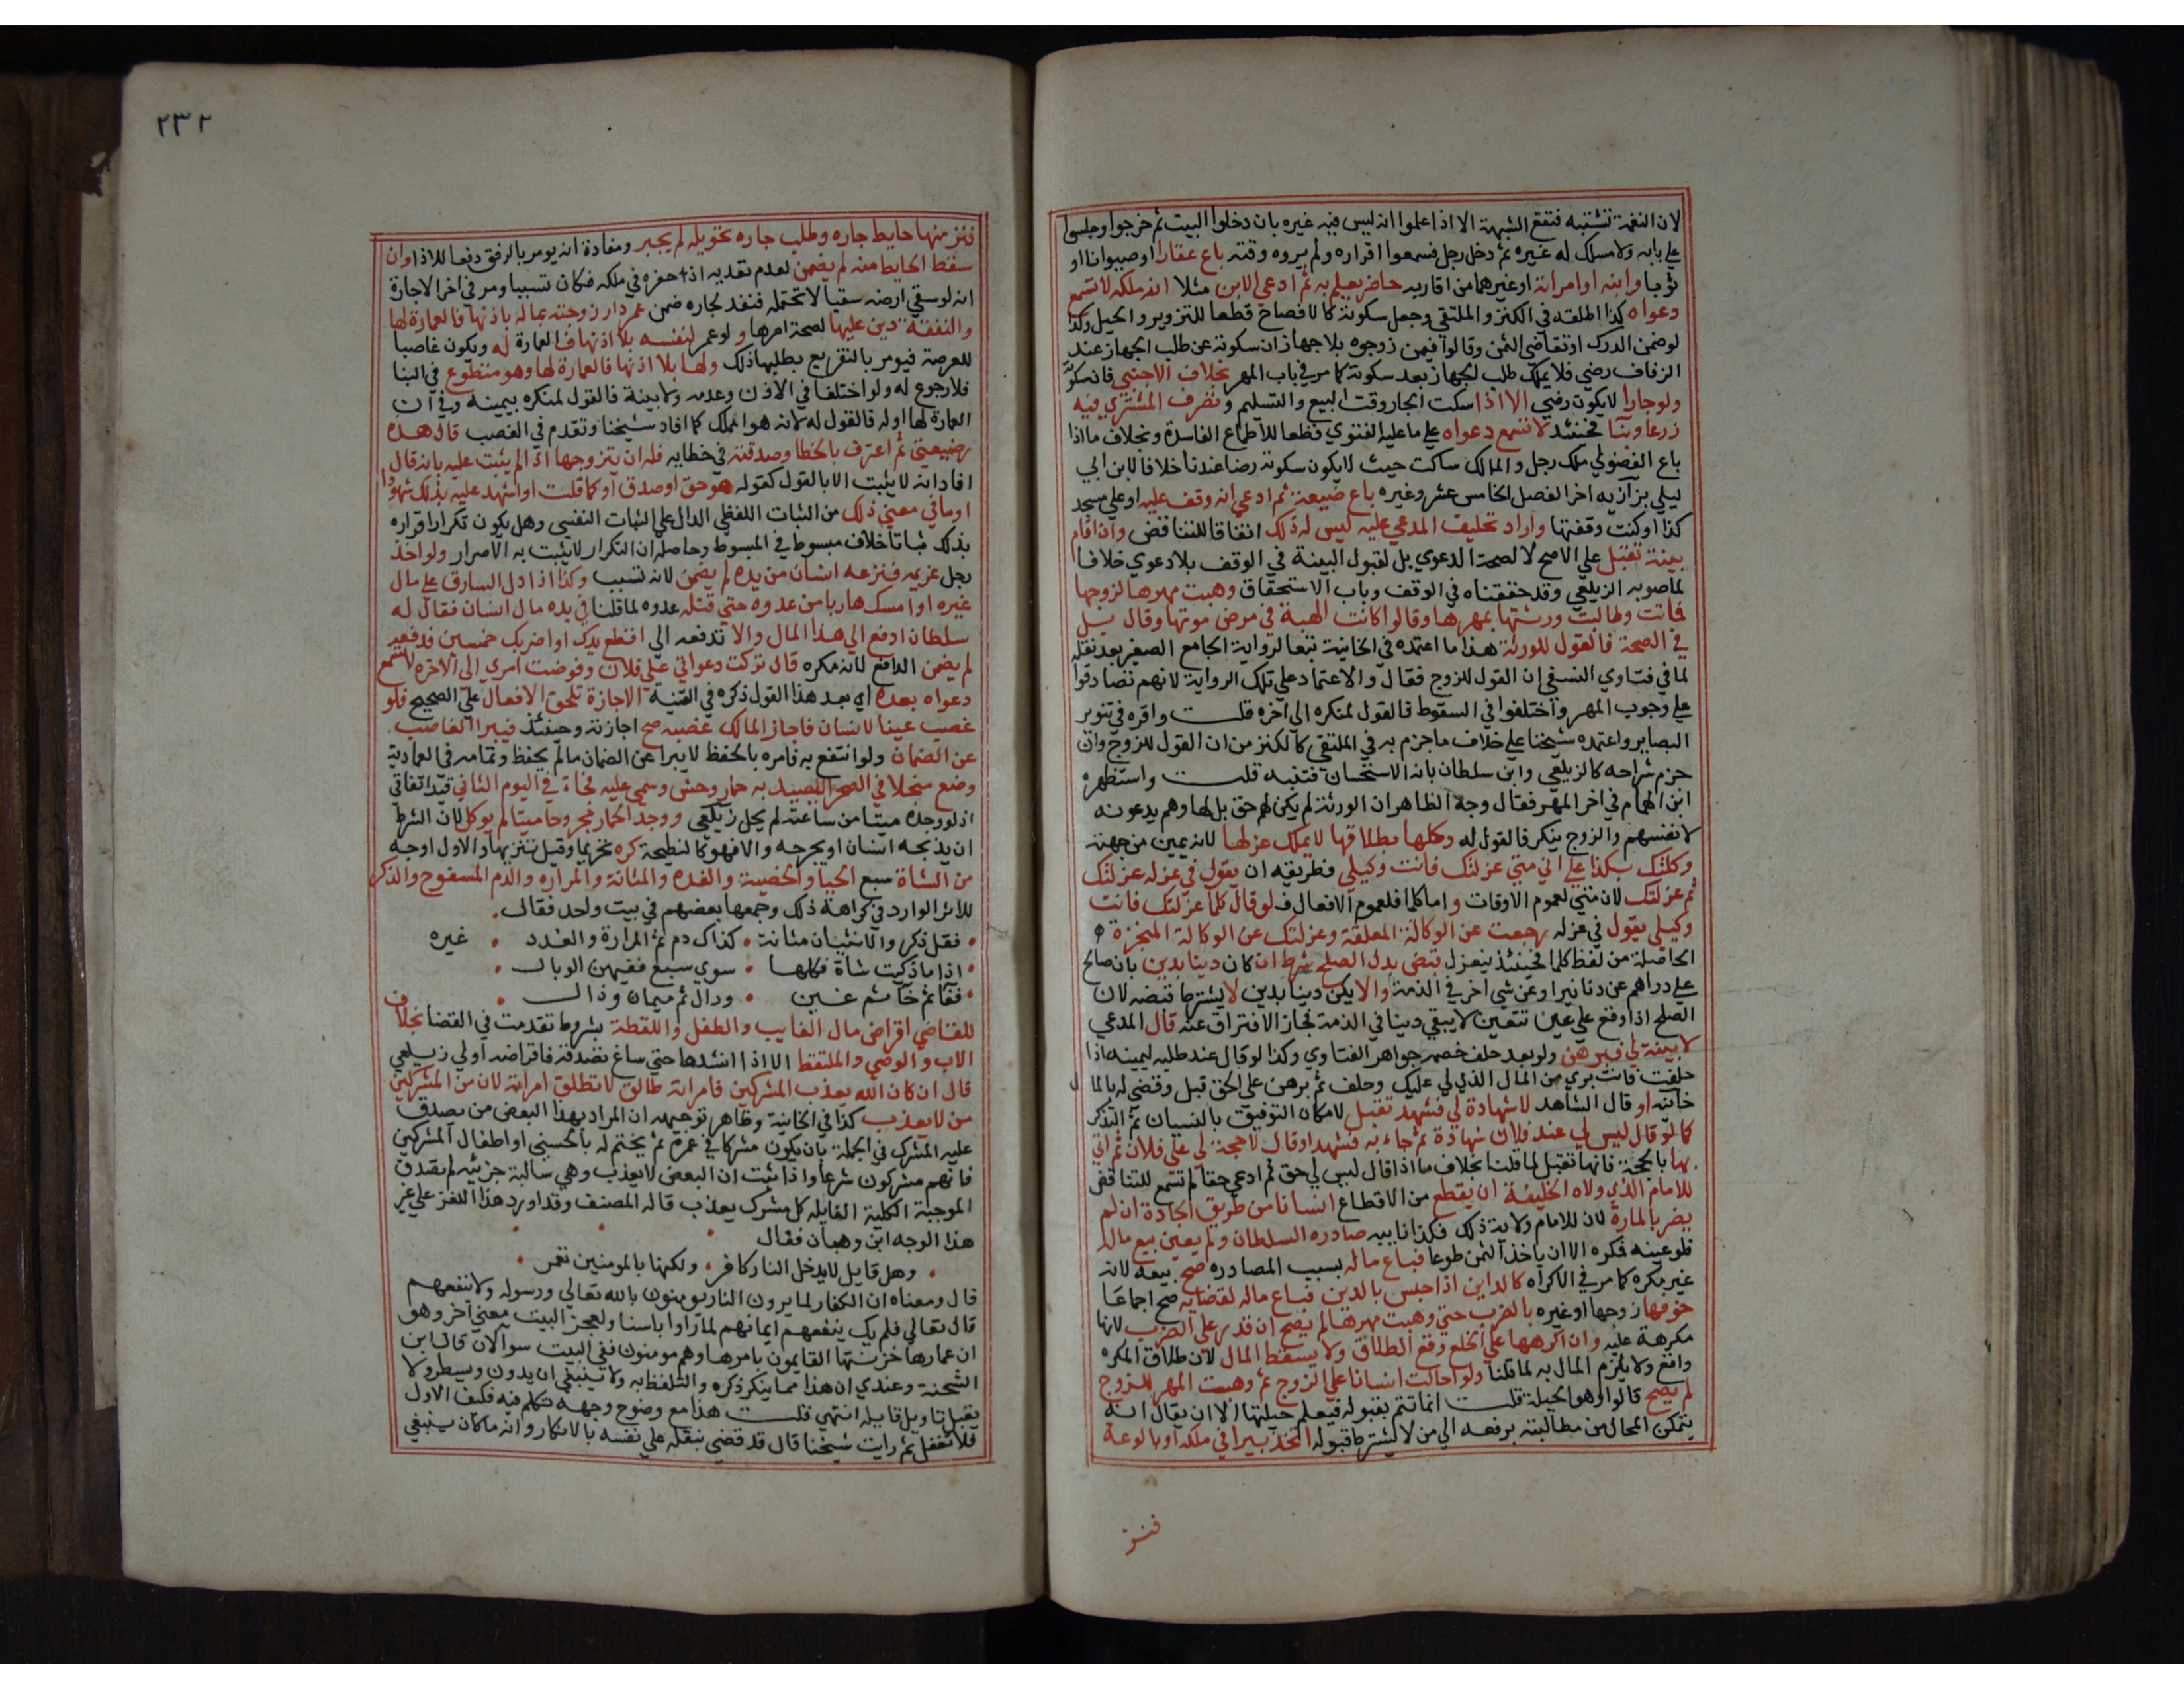 لان النغمة تشتبه فتقع الشبهة الا اذا علموا انه ليس فيه غيره بان دخلوا البيت ثم خرجوا وجلسوا
علي بابه ولا مسلك له غيره ثم دخل رجل فسمعوا اقراره ولم يروه وقته باع عقارا او حيوانا او
ثوبا وابنه او امراته او غيرهما من اقاربه حاضر يعلم به ثم ادعي الابن مثلا انه ملكه لا تسمع
دعواه كذا اطلقه في الكنز والملتقي وجعل سكوته كالافصاح قطعا للتزوير والحيل وكذا
لو ضمن الدرك او تقاضي الثمن وقالوا فيمن زوجوه بلا جهاز ان سكوته عن طلب الجهاز عند
الزفاف رضي فلا يملك طلب الجهاز بعد سكوته كما مر في باب المهر بخلاف الاجنبي فان سكوته
ولو جارا لا يكون رضي الا اذا سكت الجار وقت البيع والتسليم وتصرف المشتري فيه
زرعا وبنا فحينئذ لا تسمع دعواه علي ما عليه الفتوي قطعا للاطماع الفاسدة وبخلاف ما اذا
باع الفضولي ملك رجل والمالك ساكت حيث لا يكون سكوته رضا عندنا خلافا لابن ابي
ليلي بزازيه اخر الفصل الخامس عشر وغيره باع ضيعة ثم ادعي انه وقف عليه او علي مسجد
كذا او كنت وقفتها واراد تحليف المدعي عليه ليس له ذلك اتفاقا للتناقض وان اقام
بينة تقبل علي الاصح لا لصحة الدعوي بل لقبول البينة في الوقف بلا دعوي خلافا
لما صوبه الزيلعي وقد حققناه في الوقف وباب الاستحقاق وهبت مهرها لزوجها
فماتت وطالبت ورثتها بمهرها وقالوا كانت الهبة في مرض موتها وقال بل
في الصحة فالقول للورثة هذا ما اعتمده في الخانية تبعا لرواية الجامع الصغير بعد نقله
لما في فتاوي النسفي ان القول للزوج فقال والاعتماد علي تلك الرواية لانهم تصادقوا
علي وجوب المهر واختلفوا في السقوط فالقول لمنكره الي اخره قلت واقره في تنوير
البصاير واعتمده شيخنا علي خلاف ما جزم به في الملتقي كالكنز من ان القول للزوج وان
جزم شراحه كالزيلعي وابن سلطان بانه الاستحسان فتنبه قلت واستظهره
ابن الهمام في اخر المهر فقال وجه الظاهر ان الورثة لم يكن لهم حق بل لها وهم يدعونه
لانفسهم والزوج ينكر فالقول له وكلها بطلاقها لا يملك عزلها لانه يمين من جهته
وكلتك بكذا علي اني متي عزلتك فانت وكيلي فطريقه ان يقول في عزله عزلتك
ثم عزلتك لان متي لعموم الاوقات واما كلما فلعموم الافعال فلو قال كلما عزلتك فانت
وكيلي يقول في عزله رجعت عن الوكالة المعلقة وعزلتك عن الوكالة المنجزة
الحاصلة من لفظ كلما فحينئذ ينعزل قبض بدل الصلح شرط ان كان دينا بدين بان صالح
علي دراهم عن دنانير او عن شي اخر في الذمة والا يكن دينا بدين لا يشترط قبضه لان
الصلح اذا وقع علي عين تتعين لا يبقي دينا في الذمة فجاز الافتراق عنه قال المدعي
لا بينة لي فبرهن ولو بعد حلف خصمه جواهر الفتاوي وكذا لو قال عند طلبه ليمينه اذا
حلفت فانت بري من المال الذي لي عليك وحلف ثم برهن علي الحق قبل وقضي له بالمال
خانيه او قال الشاهد لا شهادة لي فشهد تقبل لامكان التوفيق بالنسيان ثم التذكر
كما لو قال ليس لي عند فلان شهادة ثم جاء به فشهد او قال لا حجة لي علي فلان ثم اتي
بها بالحجة فانها تقبل لما قلنا بخلاف ما اذا قال ليس لي حق ثم ادعي حقا لم تسمع للتناقض
للامام الذي ولاه الخليفة ان يقطع من الاقطاع انسانا من طريق الجادة ان لم
يضر بالمارة لان للامام ولاية ذلك فكذا نايبه صادره السلطان ولم يعين بيع ماله
فلو عينه فكره الا ان ياخذ الثمن طوعا فباع ماله بسبب المصادره صح بيعه لانه
غير مكره كما مر في الاكراه كالداين اذا حبس بالدين فباع ماله لقضايه صح اجماعا
خوفها زوجها او غيره بالضرب حتي وهبت مهرها لم يصح ان قدر علي الضرب لانها
مكرهة عليه وان اكرهها علي الخلع وقع الطلاق ولا يسقط المال لان طلاق المكره
واقع ولا يلزم المال به لما قلنا ولو احالت انسانا علي الزوج ثم وهبت المهر للزوج
لم يصح قالوا وهو الحيلة قلت انما تتم بقبوله فيعلم حيلتها الا ان يقال انه
يتمكن المحال من مطالبته برفعه الي من لا يشترط قبوله اتخذ بيرا في ملكه او بالوعة
فنز
٢٣٢
فنز منها حايط جاره وطلب جاره تحويله لم يجبر ومفادة انه يومر بالرفق دفعا للاذا وان
سقط الحايط منه لم يضمن لعدم تعديه اذ حفره في ملكه فكان تسببا ومر في اخر الاجارة
انه لو سقي ارضه سقيا لا تحتمله فنفذ لجاره ضمن عمر دار زوجته بماله باذنها فالعمارة لها
والنفقة دين عليها لصحة امرها ولو عمر لنفسه بلا اذنها فالعمارة له ويكون غاصبا
للعرصة فيومر بالتفريغ بطلبها ذلك ولها بلا اذنها فالعمارة لها وهو متطوع في البنا
فلا رجوع له ولو اختلفا في الاذن وعدمه ولا بينة فالقول لمنكره بيمينه وفي ان
العمارة لها او له فالقول له لانه هو المملك كما افاد شيخنا وتقدم في الغصب قال هذه
رضيعتي ثم اعترف بالخطا وصدقته في خطايه فله ان يتزوجها اذا لم يثبت عليه بان قال
افاد انه لا يثبت الا بالقول كقوله هو حق او صدق او كما قلت او اشهد عليه بذلك شهودا
او ما في معني ذلك من الثبات اللفظي الدال علي الثبات النفسي وهل يكون تكرار اقراره
بذلك ثباتا خلاف مبسوط في المبسوط وحاصله ان التكرار لا يثبت به الاصرار ولو اخذ
رجل غريمه فنزعه انسان من يده لم يضمن لانه تسبب وكذا اذا دل السارق علي مال
غيره او امسك هاربا من عدوه حتي قتله عدوه لما قلنا في يده مال انسان فقال له
سلطان ادفع الي هذا المال والا تدفعه الي اقطع يدك او اضربك خمسين فدفعه
لم يضمن الدافع لانه مكره قال تركت دعواي علي فلان وفوضت امري الي الاخره لا تسمع
دعواه بعده اي بعد هذا القول ذكره في القنية الاجازة تلحق الافعال علي الصحيح فلو
غصب عينا لانسان فاجاز المالك غصبه صح اجازته وحينئذ فيبرا الغاصب
عن الضمان ولو انتفع به فامره بالحفظ لا يبرا عن الضمان ما لم يحفظ وتمامه في العمادية
وضع منجلا في الصحرا ليصيد به حمار وحش وسمي عليه فجاء في اليوم الثاني قيد اتفاقي
اذ لو وجده ميتا من ساعته لم يحل زيلعي ووجد الحمار مجروحا ميتا لم يوكل لان الشرط
ان يذبحه انسان او يجرحه والا فهو كالنطيحة كره تحريما وقيل تنزيها والاول اوجه
من الشاة سبع الحيا والخصية والغده والمثانة والمراره والدم المسفوح والذكر
للاثر الوارد في كراهة ذلك وجمعها بعضهم في بيت واحد فقال
فقل ذكر والانثيان مثانة كذاك دم ثم المرارة والغدد غيره
اذا ما ذكيت شاة فكلها سوي سبع ففيهن الوبال
فقاء ثم خاء ثم غين ودال ثم ميمان وذال
للقاضي اقراض مال الغايب والطفل واللقطة بشروط تقدمت في القضا بخلاف
الاب والوصي والملتقط الا اذا انشدها حتي ساغ تصدقه فاقراضه اولي زيلعي
قال ان كان الله يعذب المشركين فامراته طالق لا تطلق امراته لان من المشركين
من لا يعذب كذا في الخانية وظاهر توجيهه ان المراد بهذا البعض من يصدق
عليه المشرك في الجملة بان يكون مشركا في عمره ثم يختم له بالحسني او اطفال المشركين
فانهم مشركون شرعا واذا ثبت ان البعض لا يعذب وهي سالبة جزئيه لم يصدق
الموجبة الكلية القايله كل مشرك يعذب قاله المصنف وقد اورد هذا اللغز علي غير
هذا الوجه ابن وهبان فقال
وهل قايل لا يدخل النار كافر ولكنها بالمومنين تعمر
قال ومعناه ان الكفار لما يرون النار يومنون بالله تعالي ورسوله ولا ينفعهم
قال تعالي فلم يك ينفعهم ايمانهم لما راوا باسنا ولعجز البيت معني اخر وهو
ان عمارها خزنتها القايمون بامرها وهم مومنون ففي البيت سوالان قال ابن
الشحنة وعندي ان هذا مما ينكر ذكره والتلفظ به ولا ينبغي ان يدون ويسطر ولا
يقبل تاويل قايله انتهي قلت هذا مع وضوح وجهه تتكلم فيه فكيف الاول
فلا تغفل ثم رايت شيخنا قال قد قضي بنقله علي نفسه بالانكار وانه ما كان ينبغي